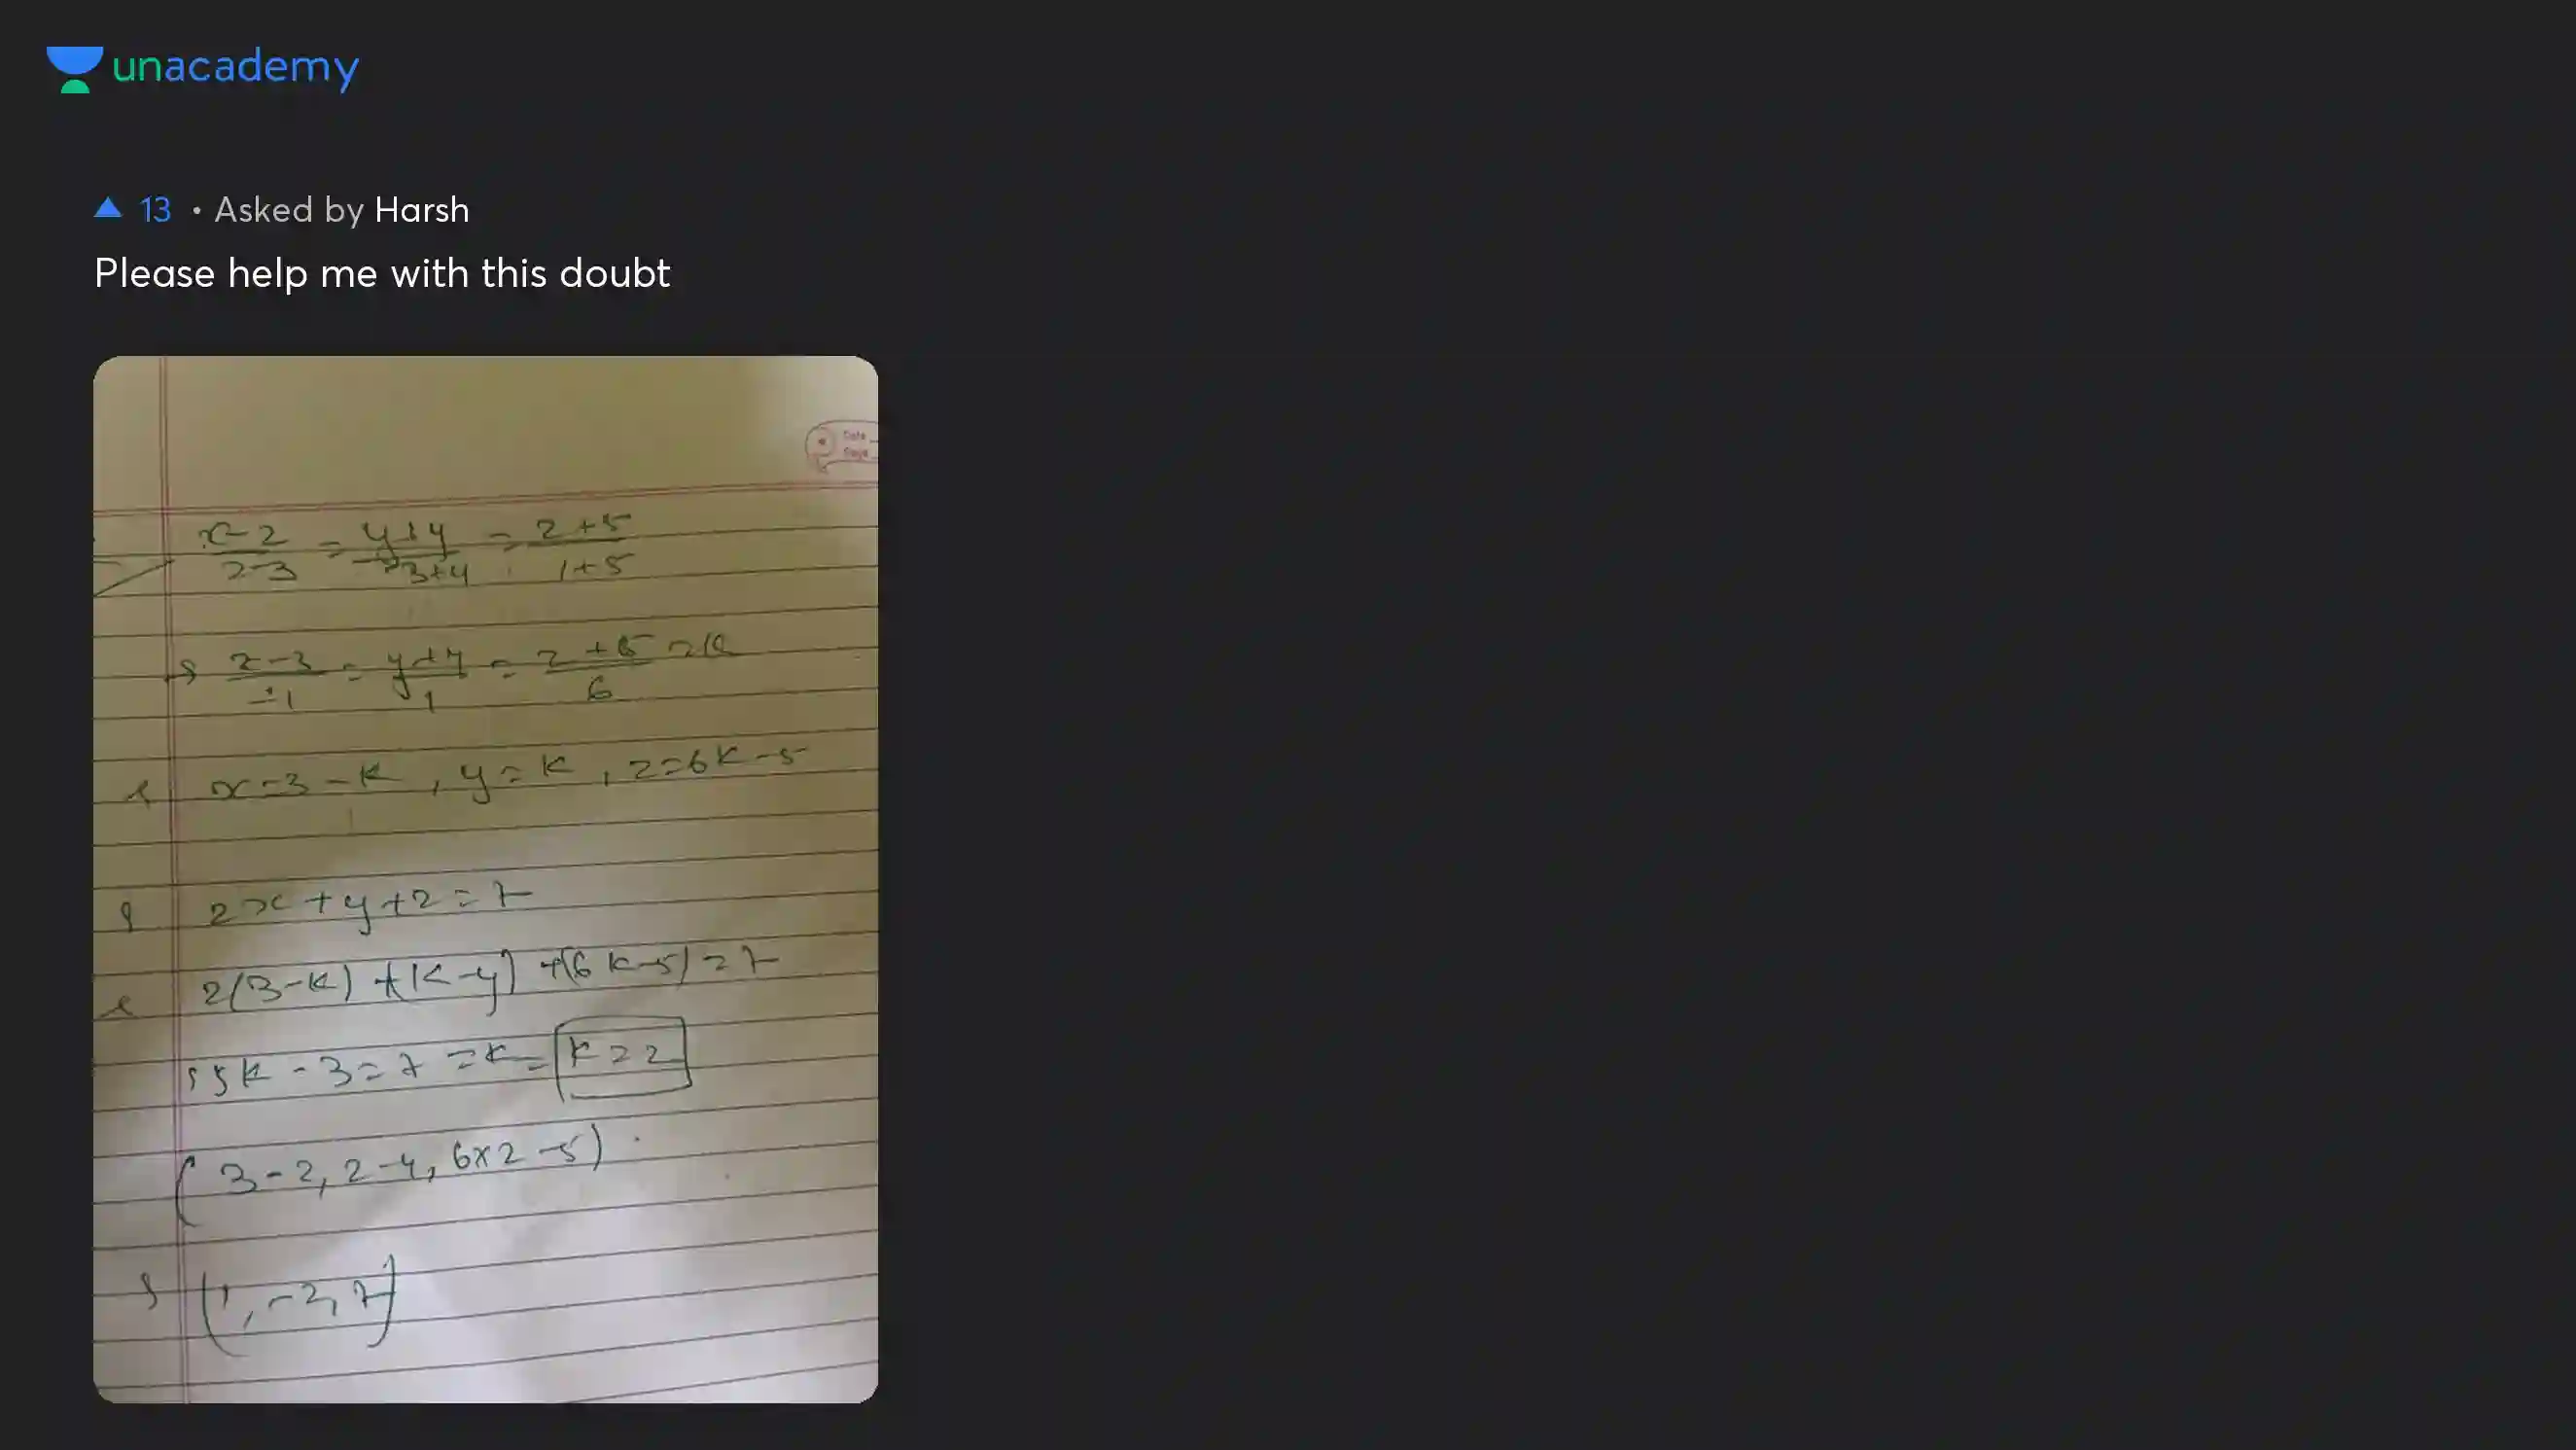 unacademy
13 • Asked by Harsh
Please help me with this doubt
Date
Page
x-2/2-3 = y+4/-3+4 = z+5/1+5
x-3/-1 = y+4/1 = z+5/6 = k
x=3-k, y=k, z=6k-5
2x+y+z=7
2(3-k)+(k-4)+(6k-5)=7
5k-3=7 =k= k=2
(3-2, 2-4, 6x2-5)
(1, -2, 7)